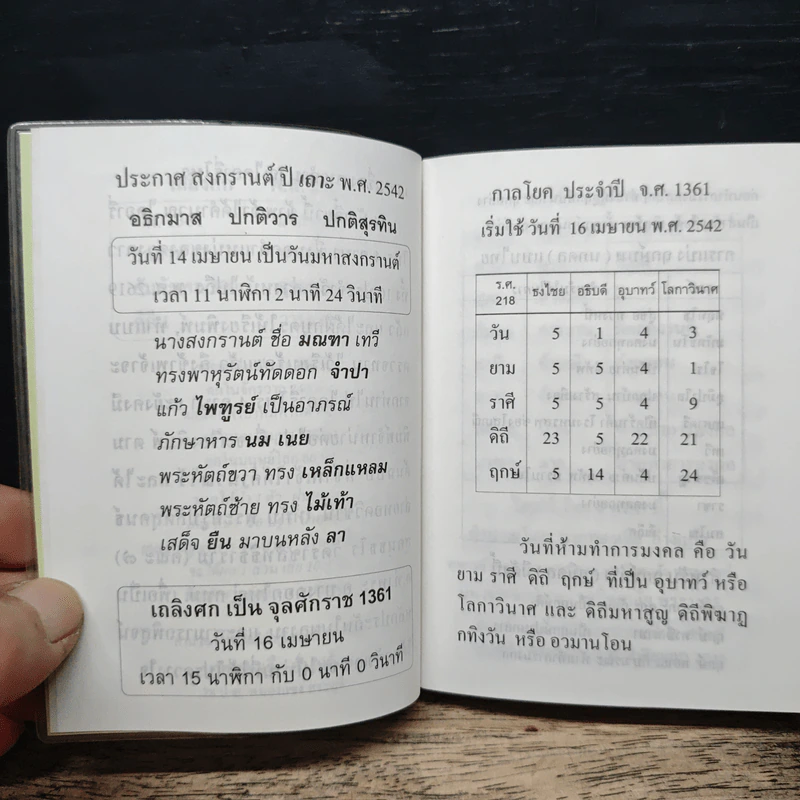 ประกาศ สงกรานต์ ปี เถาะ พ.ศ. 2542
อธิกมาส ปกติวาร ปกติสุรทิน
วันที่ 14 เมษายน เป็นวันมหาสงกรานต์
เวลา 11 นาฬิกา 2 นาที 24 วินาที
นางสงกรานต์ ชื่อ มณฑา เทวี
ทรงพาหุรัตน์ทัดดอก จำปา
แก้ว ไพฑูรย์ เป็นอาภรณ์
ภักษาหาร นม เนย
พระหัตถ์ขวา ทรง เหล็กแหลม
พระหัตถ์ซ้าย ทรง ไม้เท้า
เสด็จ ยืน มาบนหลัง ลา
เถลิงศก เป็น จุลศักราช 1361
วันที่ 16 เมษายน
เวลา 15 นาฬิกา กับ 0 นาที 0 วินาที
กาลโยค ประจำปี จ.ศ. 1361
เริ่มใช้ วันที่ 16 เมษายน พ.ศ. 2542
ร.ศ. 218 ธงไชย อธิบดี อุบาทว์ โลกาวินาศ
วัน 5 1 4 3
ยาม 5 5 4 1
ราศี 5 5 4 9
ดิถี 23 5 22 21
ฤกษ์ 5 14 4 24
วันที่ห้ามทำการมงคล คือ วัน
ยาม ราศี ดิถี ฤกษ์ ที่เป็น อุบาทว์ หรือ
โลกาวินาศ และ ดิถีมหาสูญ ดิถีพิฆาฏ
กทิงวัน หรือ อวมานโอน